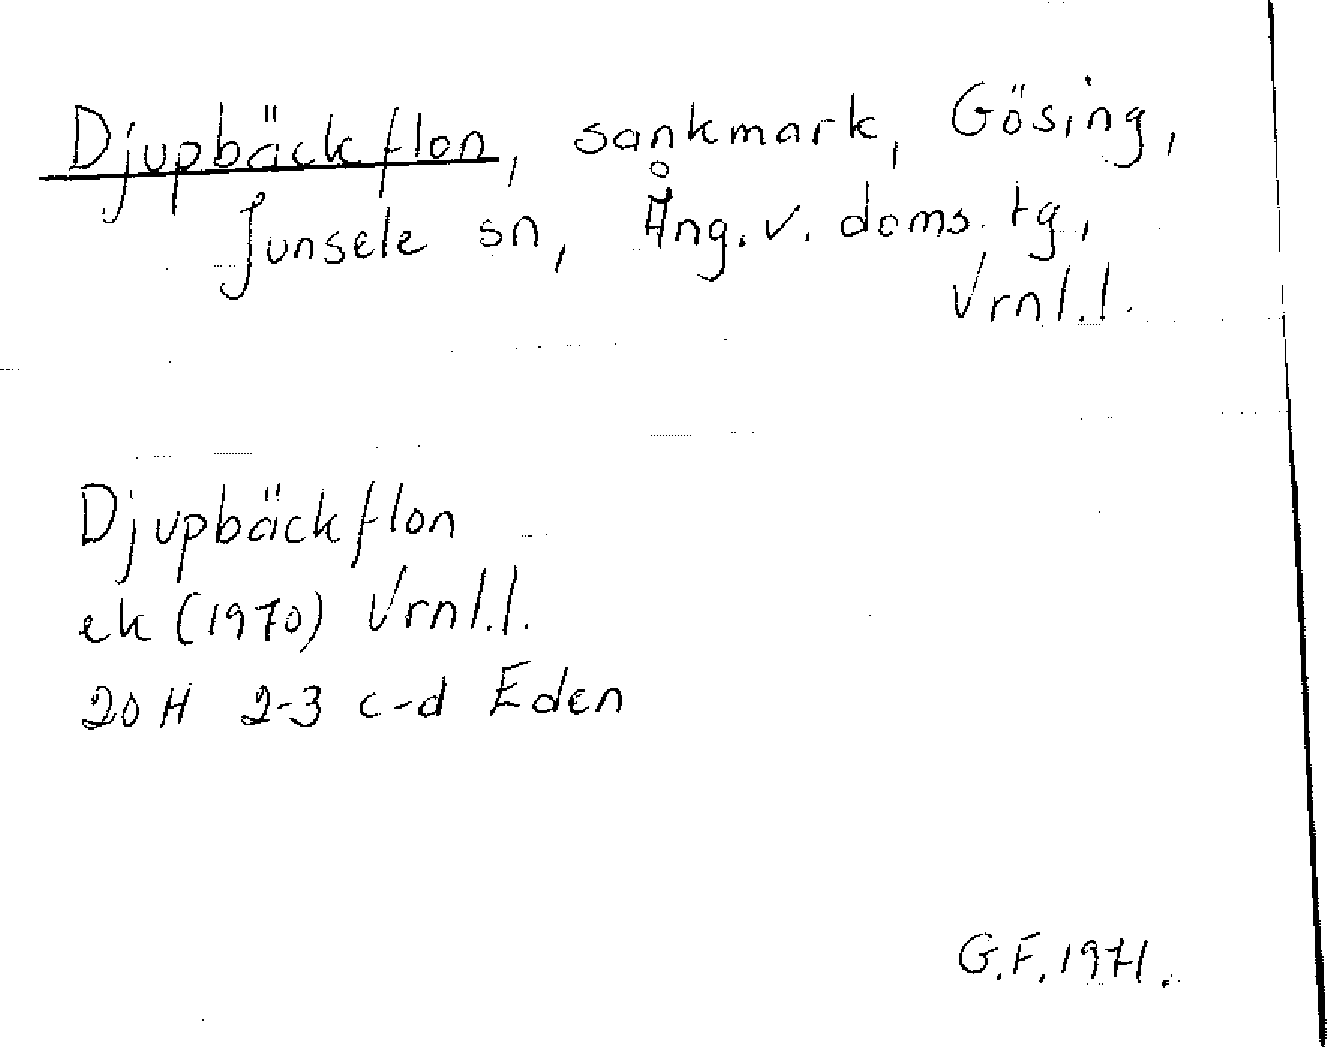 Djupbäckflon, sankmark, Gösing,
Junsele sn, Ång. v. doms. tg,
Vrnl.l.
Djupbäckflon
ek (1970) Vrnl.l.
20 H 2-3 c-d Eden
G.F. 1971.